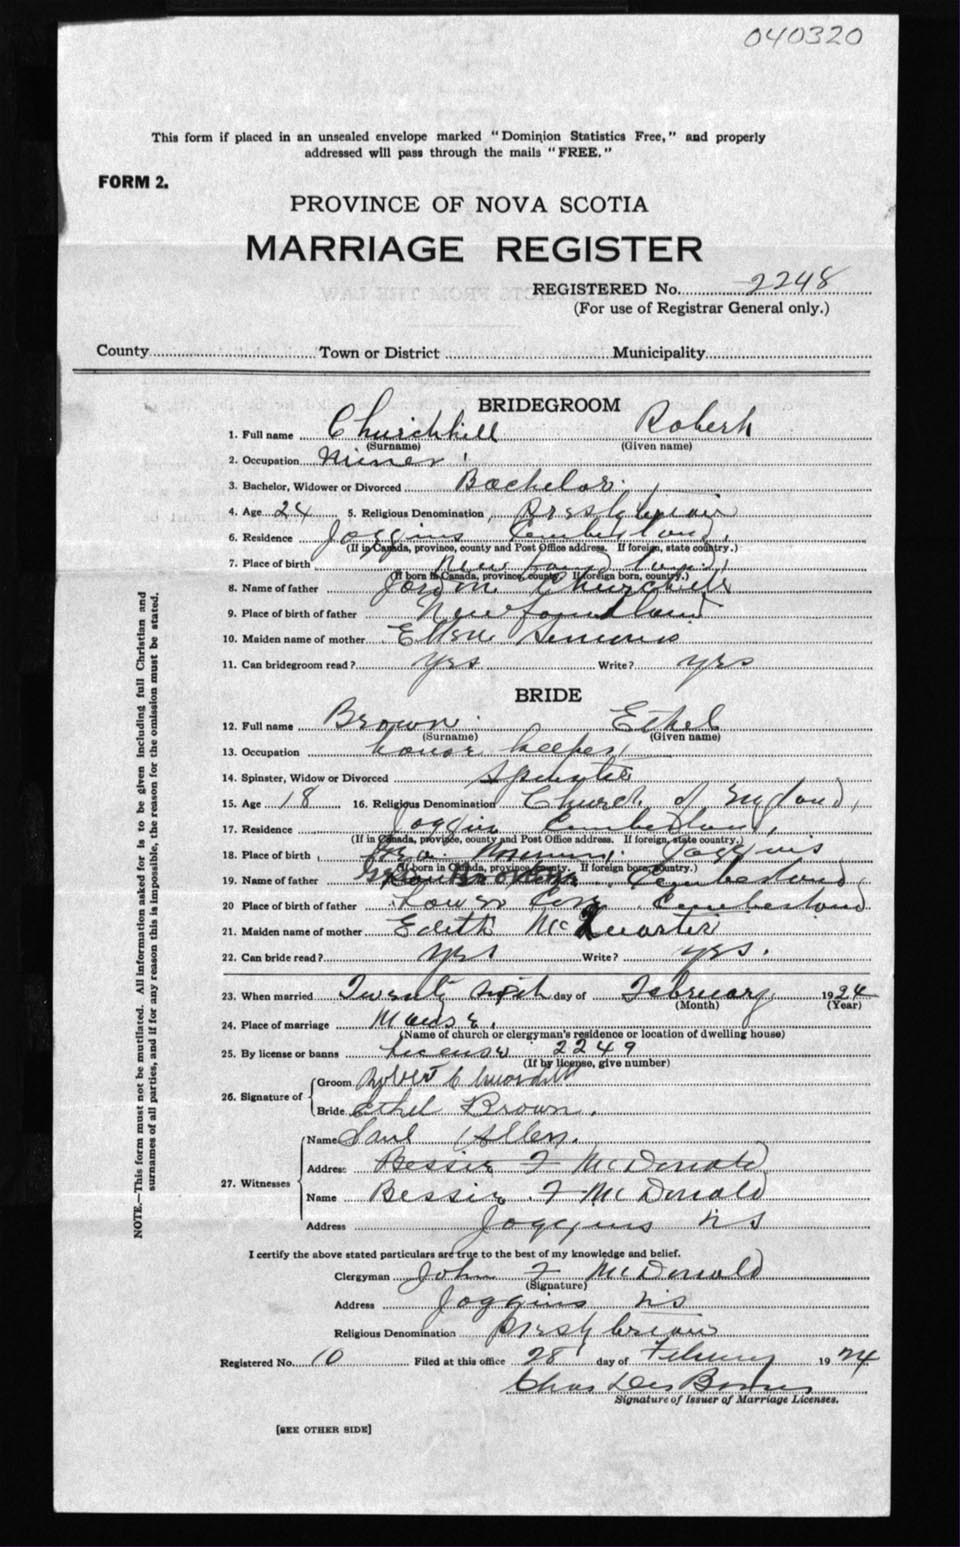 040320
This form if placed in an unsealed envelope marked "Dominion Statistics Free," and properly
addressed will pass through the mails "FREE."
FORM 2.
PROVINCE OF NOVA SCOTIA
MARRIAGE REGISTER
REGISTERED No. 2248
(For use of Registrar General only.)
County Town or District Municipality
BRIDEGROOM
1. Full name Churchhill Robert
(Surname) (Given name)
2. Occupation Miner
3. Bachelor, Widower or Divorced Bachelor
4. Age 24 5. Religious Denomination Presbyterian
6. Residence Joggins Cumberland
(If in Canada, province, county and Post Office address. If foreign, state country.)
7. Place of birth New found land
(If born in Canada, province, county. If foreign born, country.)
8. Name of father Churchill
9. Place of birth of father Newfoundland
10. Maiden name of mother Ellen
11. Can bridegroom read? yes Write? yes
BRIDE
12. Full name Brown Ethel
(Surname) (Given name)
13. Occupation keeper
14. Spinster, Widow or Divorced Spinster
15. Age 18 16. Religious Denomination Church of England
17. Residence Joggins Cumberland,
(If in Canada, province, county and Post Office address. If foreign, state country.)
18. Place of birth Joggins
(If born in Canada, province, county. If foreign born, country.)
19. Name of father Cumberland
20 Place of birth of father Lower Cove Cumberland
21. Maiden name of mother Edith McQuarrie
22. Can bride read? yes Write? yes.
23. When married Twenty day of February 1924
(Month) (Year)
24. Place of marriage Manse,
(Name of church or clergyman's residence or location of dwelling house)
25. By license or banns License 2249
(If by license, give number)
26. Signature of Groom Robert
Bride Ethel Brown.
27. Witnesses Name Allen.
Address Bessie F McDonald
Name Bessie F McDonald
Address Joggins NS
I certify the above stated particulars are true to the best of my knowledge and belief.
Clergyman John F McDonald
(Signature)
Address Joggins NS
Religious Denomination Presbyterian
Registered No. 10 Filed at this office 28 day of February 1924
Chas
Signature of Issuer of Marriage Licenses.
[SEE OTHER SIDE]
NOTE.—This form must not be mutilated. All information asked for is to be given including full Christian and
surnames of all parties, and if for any reason this is impossible, the reason for the omission must be stated.